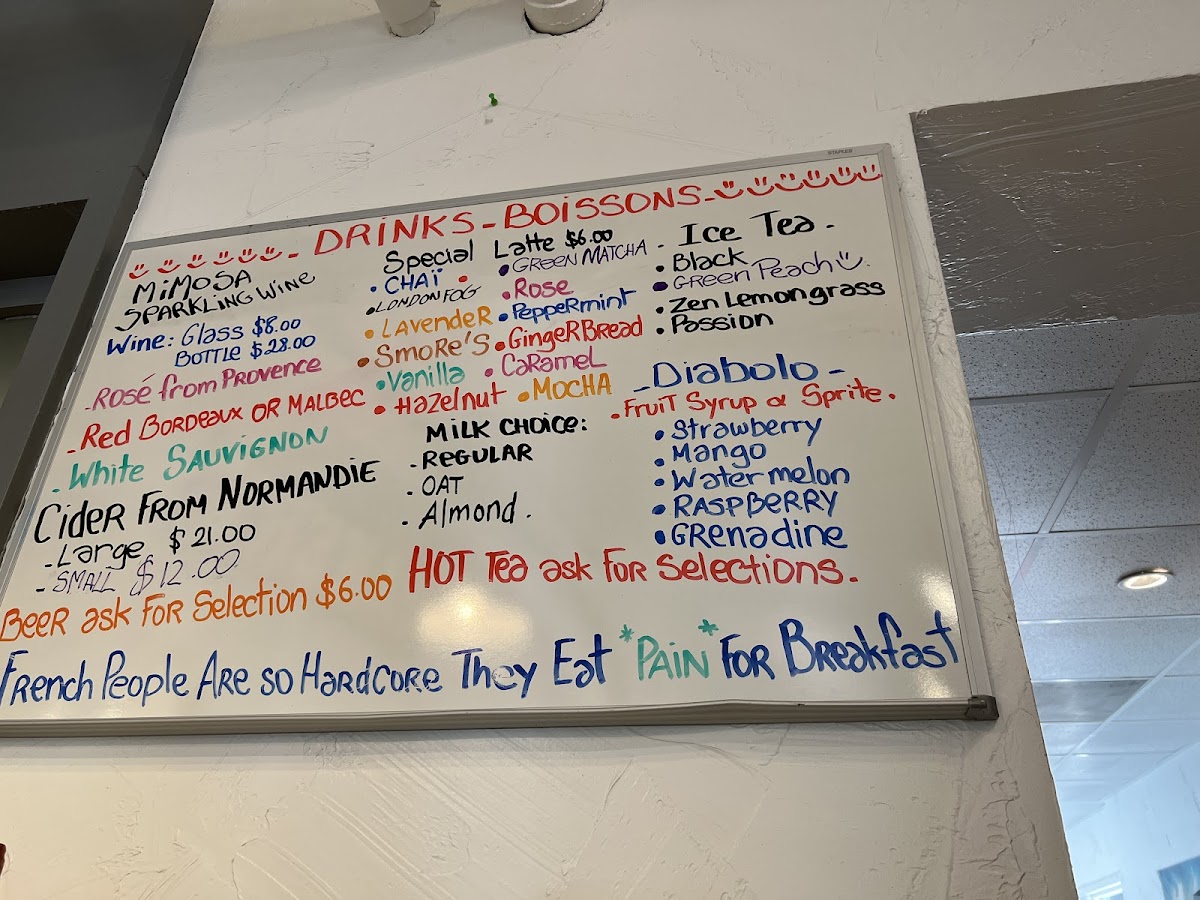 STAPLES
DRINKS - BOISSONS -
MIMOSA
SPARKLING WINE
Wine: Glass $8.00
BOTTLE $28.00
- Rosé from PROVENCE
- Red BORDEAUX OR MALBEC
- White SAUVIGNON
Cider FROM NORMANDIE
- Large $21.00
- SMALL $12.00
BEER ask FOR Selection $6.00
Special Latte $6.00
• CHAÏ
• GREEN MATCHA
• LONDON FOG
• Rose
• LAVENDER
• PEPPERMINT
• SMORE'S
• GINGERBREAD
• Vanilla
• CARAMEL
• Hazelnut
• MOCHA
MILK CHOICE:
- REGULAR
- OAT
- Almond.
- Ice Tea -
• Black
• GREEN Peach
• Zen Lemongrass
• Passion
- Diabolo -
• FRUIT Syrup & Sprite.
• Strawberry
• Mango
• Watermelon
• RASPBERRY
• GRenadine
HOT Tea ask FOR Selections.
FRench People ARE so HARDCORE They Eat *PAIN* FOR Breakfast